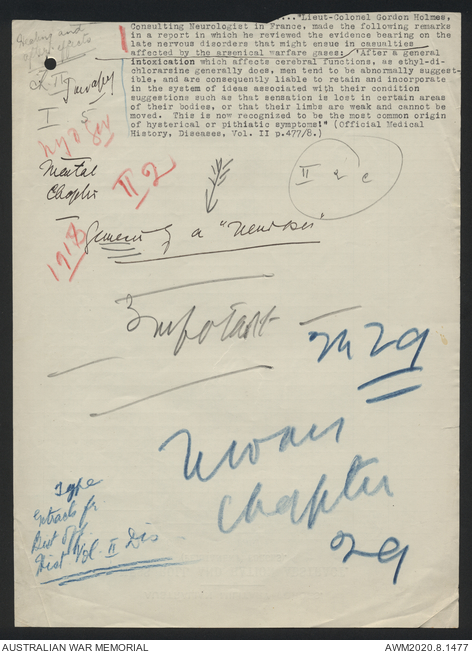 ..."Lieut-Colonel Gordon Holmes,
Consulting Neurologist in France, made the following remarks
in a report in which he reviewed the evidence bearing on the
late nervous disorders that might ensue in casualties
affected by the arsenical warfare gases: 'After a general
intoxication which affects cerebral functions, as ethyl-di-
chlorarsine generally does, men tend to be abnormally suggest-
ible, and are consequently liable to retain and incorporate
in the system of ideas associated with their condition
suggestions such as that sensation is lost in certain areas
of their bodies, or that their limbs are weak and cannot be
moved. This is now recognized to be the most common origin
of hysterical or pithiatic symptoms!" (Official Medical
History, Diseases, Vol. II p.477/8.)
after effects
I 5
Mental
Chapter
II 2
II 2 c
1918
of a "neurosis"
Important
29
Chapter
29
Type
Extracts fr.
Hist Vol. II Dis
AUSTRALIAN WAR MEMORIAL
AWM2020.8.1477